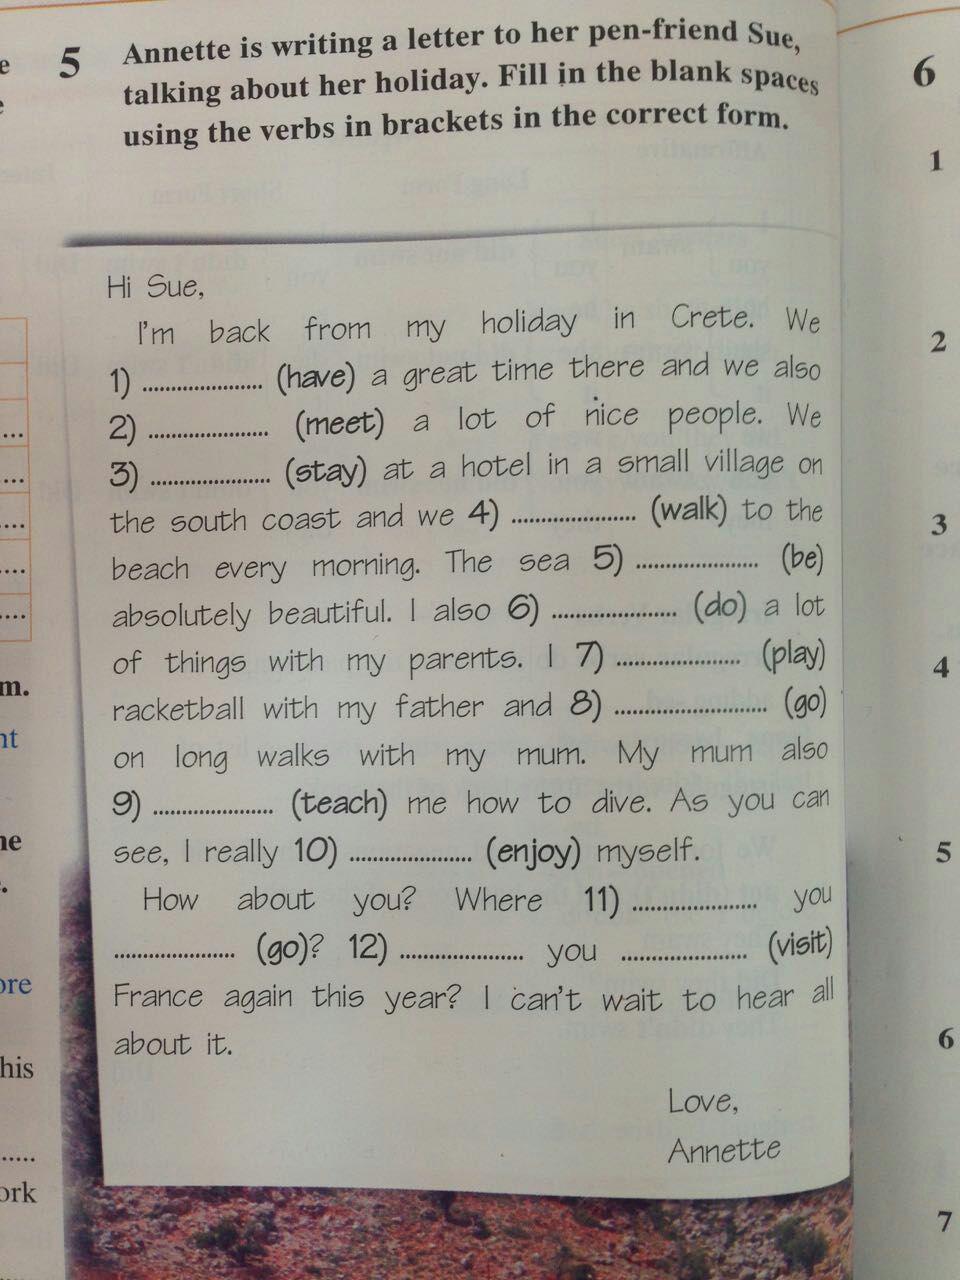 5 Annette is writing a letter to her pen-friend Sue,
talking about her holiday. Fill in the blank spaces
using the verbs in brackets in the correct form.
Hi Sue,
I'm back from my holiday in Crete. We
1) .................... (have) a great time there and we also
2) .................... (meet) a lot of nice people. We
3) .................... (stay) at a hotel in a small village on
the south coast and we 4) .................... (walk) to the
beach every morning. The sea 5) .................... (be)
absolutely beautiful. I also 6) .................... (do) a lot
of things with my parents. I 7) .................... (play)
racketball with my father and 8) ......................... (go)
on long walks with my mum. My mum also
9) .................... (teach) me how to dive. As you can
see, I really 10) .................... (enjoy) myself.
How about you? Where 11) .................... you
.................... (go)? 12) .................... you .................... (visit)
France again this year? I can't wait to hear all
about it.
Love,
Annette
6
1
2
3
4
5
6
7